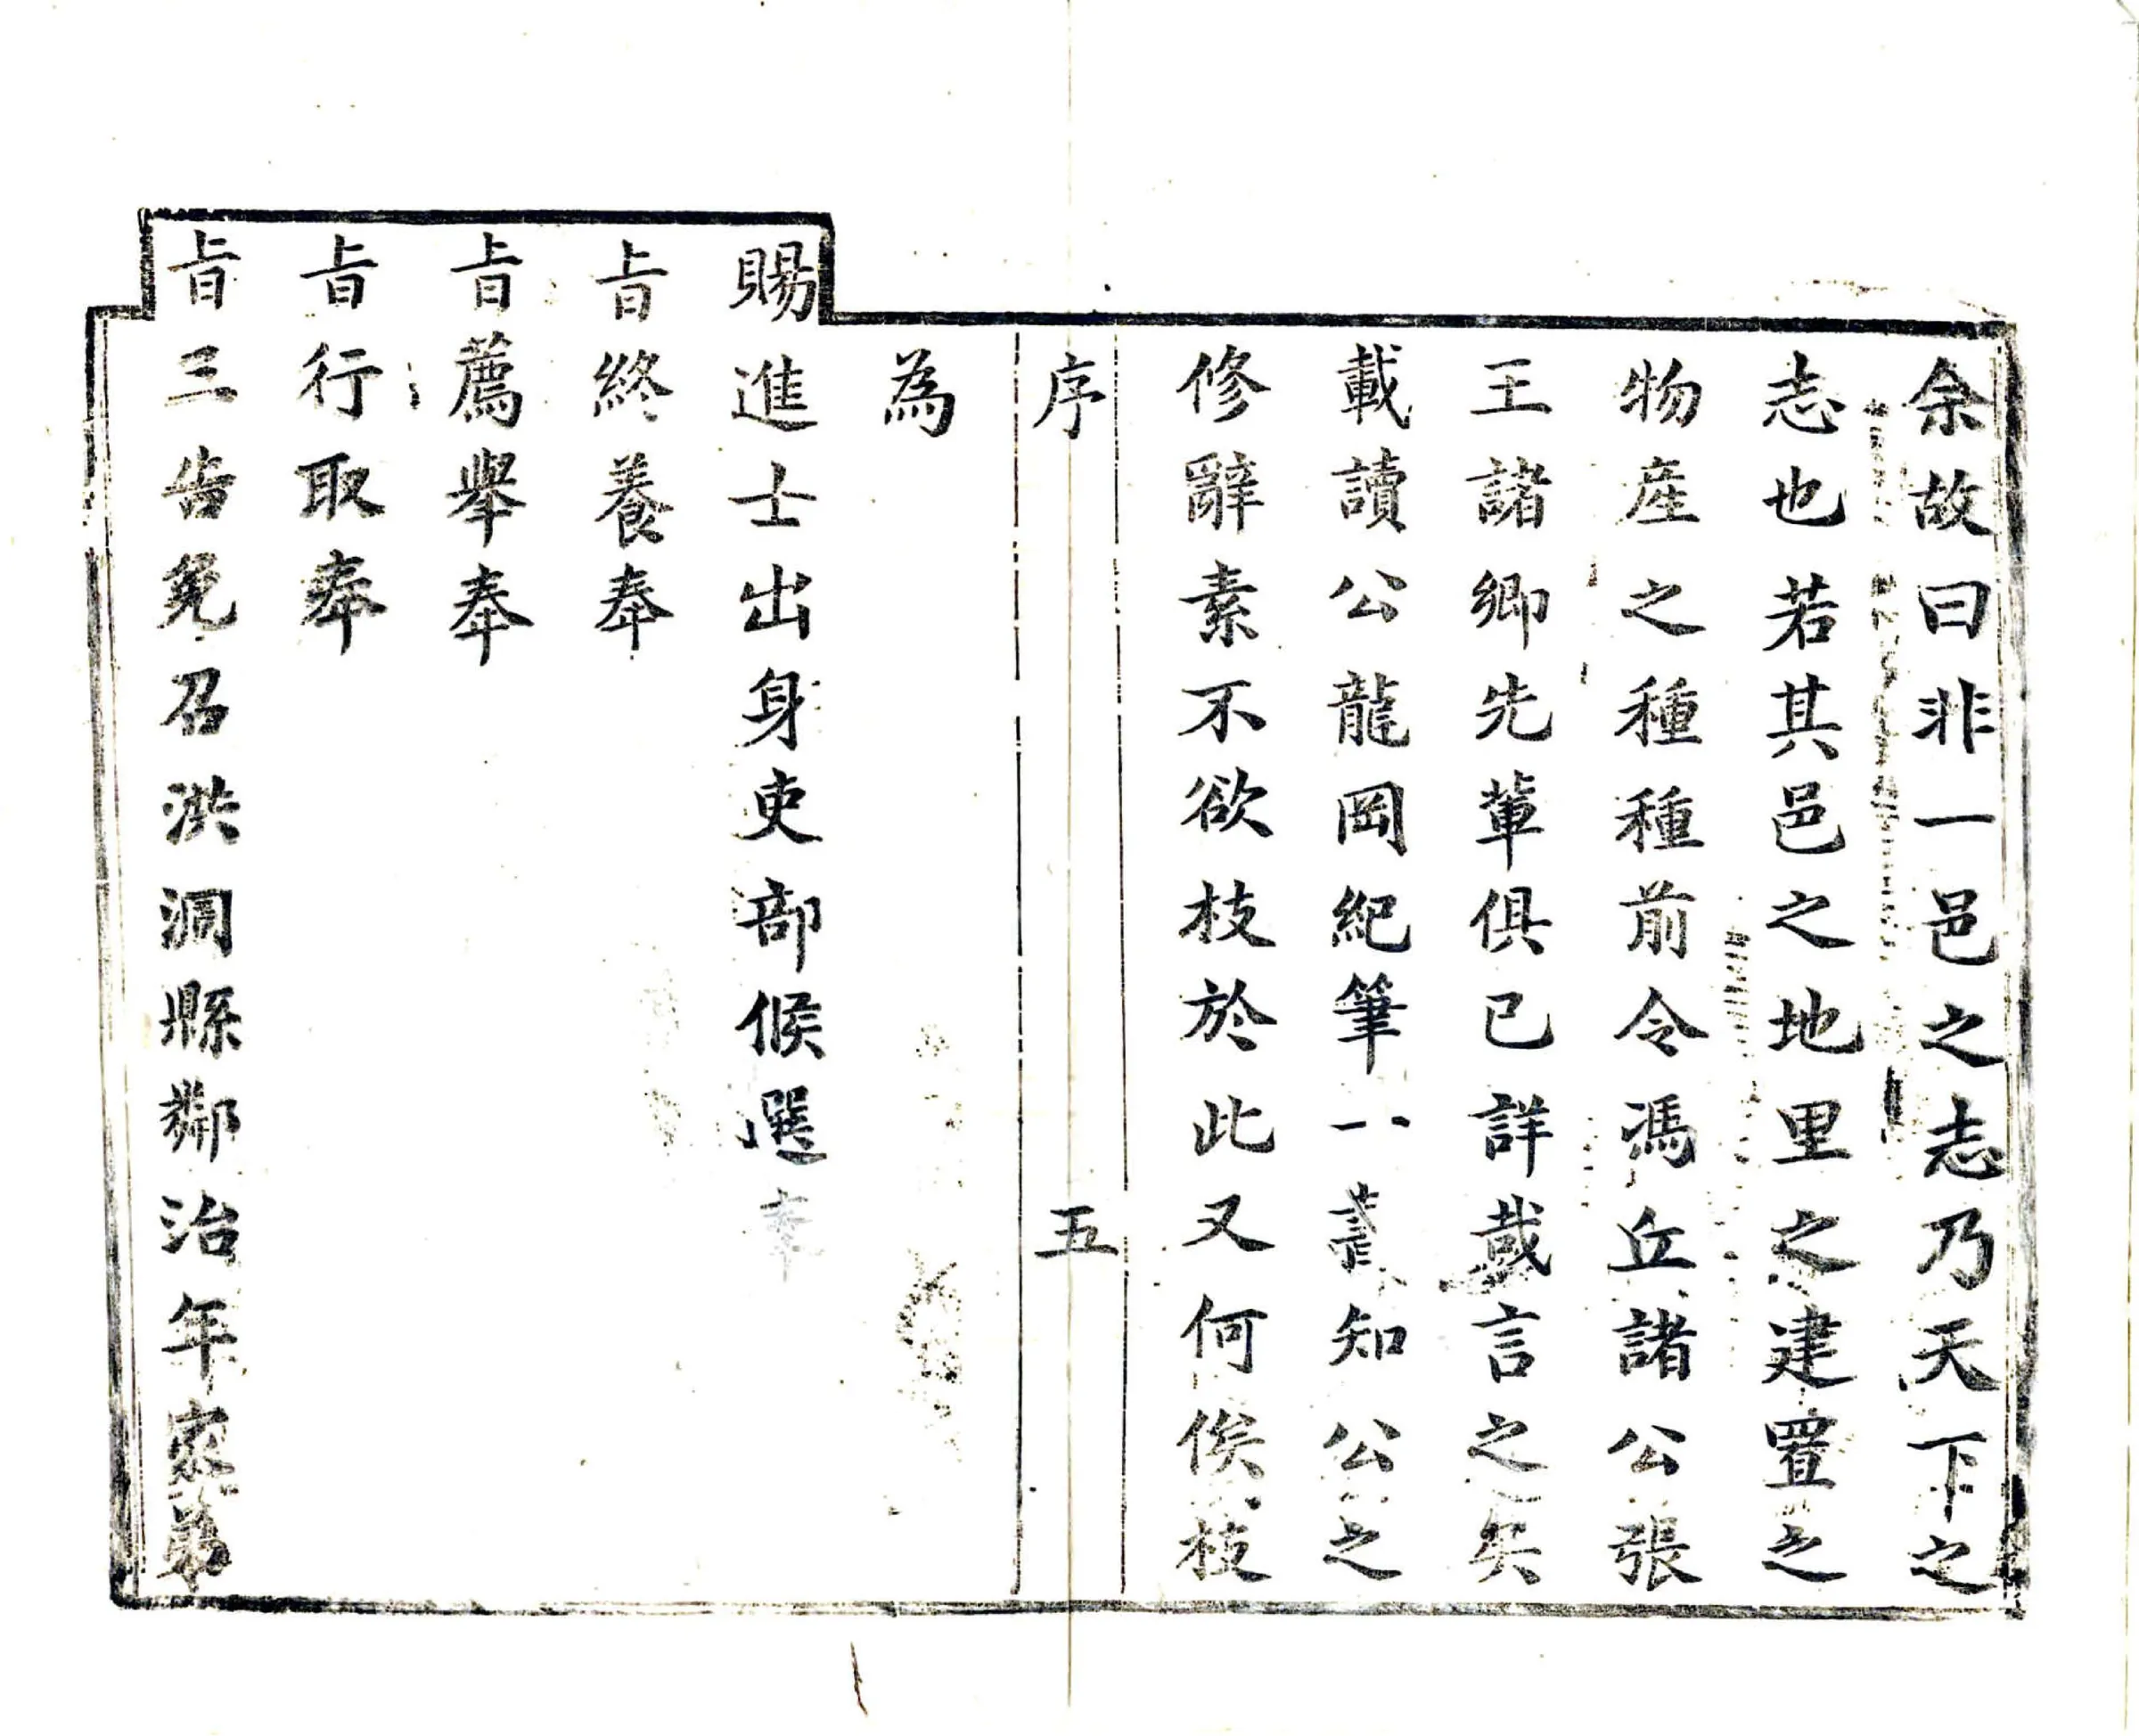 余故曰非一邑之志乃天下之
志也若其邑之地里之建置之
物産之種種前令馮丘諸公張
王諸鄉先輩俱已詳哉言之矣
載讀公龍岡紀筆一知公之
修辭素不欲枝於此又何俟枝
序 五
為
賜進士出身吏部候選奉
㫖終養奉
㫖薦舉奉
㫖行取奉
㫖三告免召洪洞縣鄰治年弟